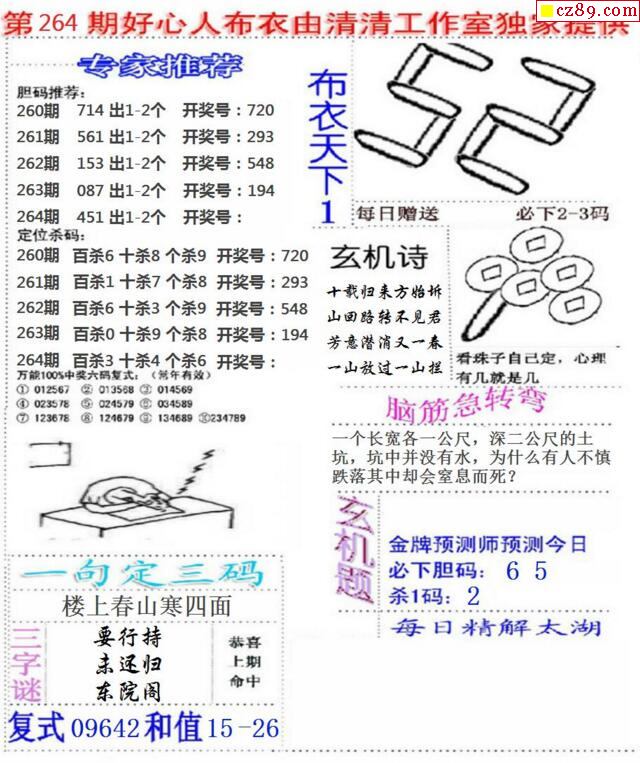 第264期好心人布衣由清清工作室独家提供
cz89.com
专家推荐
胆码推荐：
260期 714 出1-2个 开奖号：720
261期 561 出1-2个 开奖号：293
262期 153 出1-2个 开奖号：548
263期 087 出1-2个 开奖号：194
264期 451 出1-2个 开奖号：
定位杀码：
260期 百杀6 十杀8 个杀9 开奖号：720
261期 百杀1 十杀7 个杀8 开奖号：293
262期 百杀6 十杀3 个杀9 开奖号：548
263期 百杀0 十杀9 个杀8 开奖号：194
264期 百杀3 十杀4 个杀6 开奖号：
万能100%中奖六码复式：（常年有效）
① 012567 ② 013568 ③ 014569
④ 023578 ⑤ 024579 ⑥ 034589
⑦ 123678 ⑧ 124679 ⑨ 134689 ⑩234789
布衣天下1
52
每日赠送 必下2-3码
玄机诗
十载归来方始坼
山回路转不见君
芳意潜消又一春
一山放过一山拦
看珠子自己定，心理
有几就是几
脑筋急转弯
一个长宽各一公尺，深二公尺的土
坑，坑中并没有水，为什么有人不慎
跌落其中却会窒息而死？
玄机题
金牌预测师预测今日
必下胆码： 6 5
杀1码：2
每日精解太湖
一句定三码
楼上春山寒四面
三字谜
要行持
未还归
东院阁
恭喜
上期
命中
复式09642和值15-26